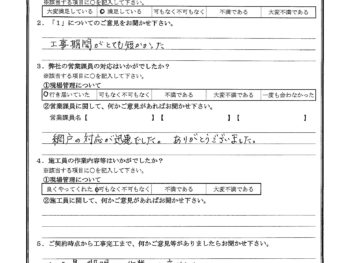 ※該当する項目に○を記入して下さい。
大変満足している ○ 満足している 可もなく不可もなく 不満である 大変不満である
2.「1」についてのご意見をお聞かせ下さい。
工事期間がとても短かった
3.弊社の営業課員の対応はいかがでしたか?
※該当する項目に○を記入して下さい。
①現場管理について
○行き届いていた 可もなく不可もなく 不満である 大変不満である 一度も会わなかった
②営業課員に関して、何かご意見があればお聞かせ下さい。
営業課員名【 】【 】【 】
網戸の対応が迅速でした。ありがとうございました。
4.施工員の作業内容等はいかがでしたか?
※該当する項目に○を記入して下さい。
①現場管理について
良くやってくれた 可もなく不可もなく 不満である 大変不満である
②施工員に関して、何かご意見があればお聞かせ下さい。
5.ご契約時点から工事完工まで、何かご意見等がありましたらお聞かせ下さい。